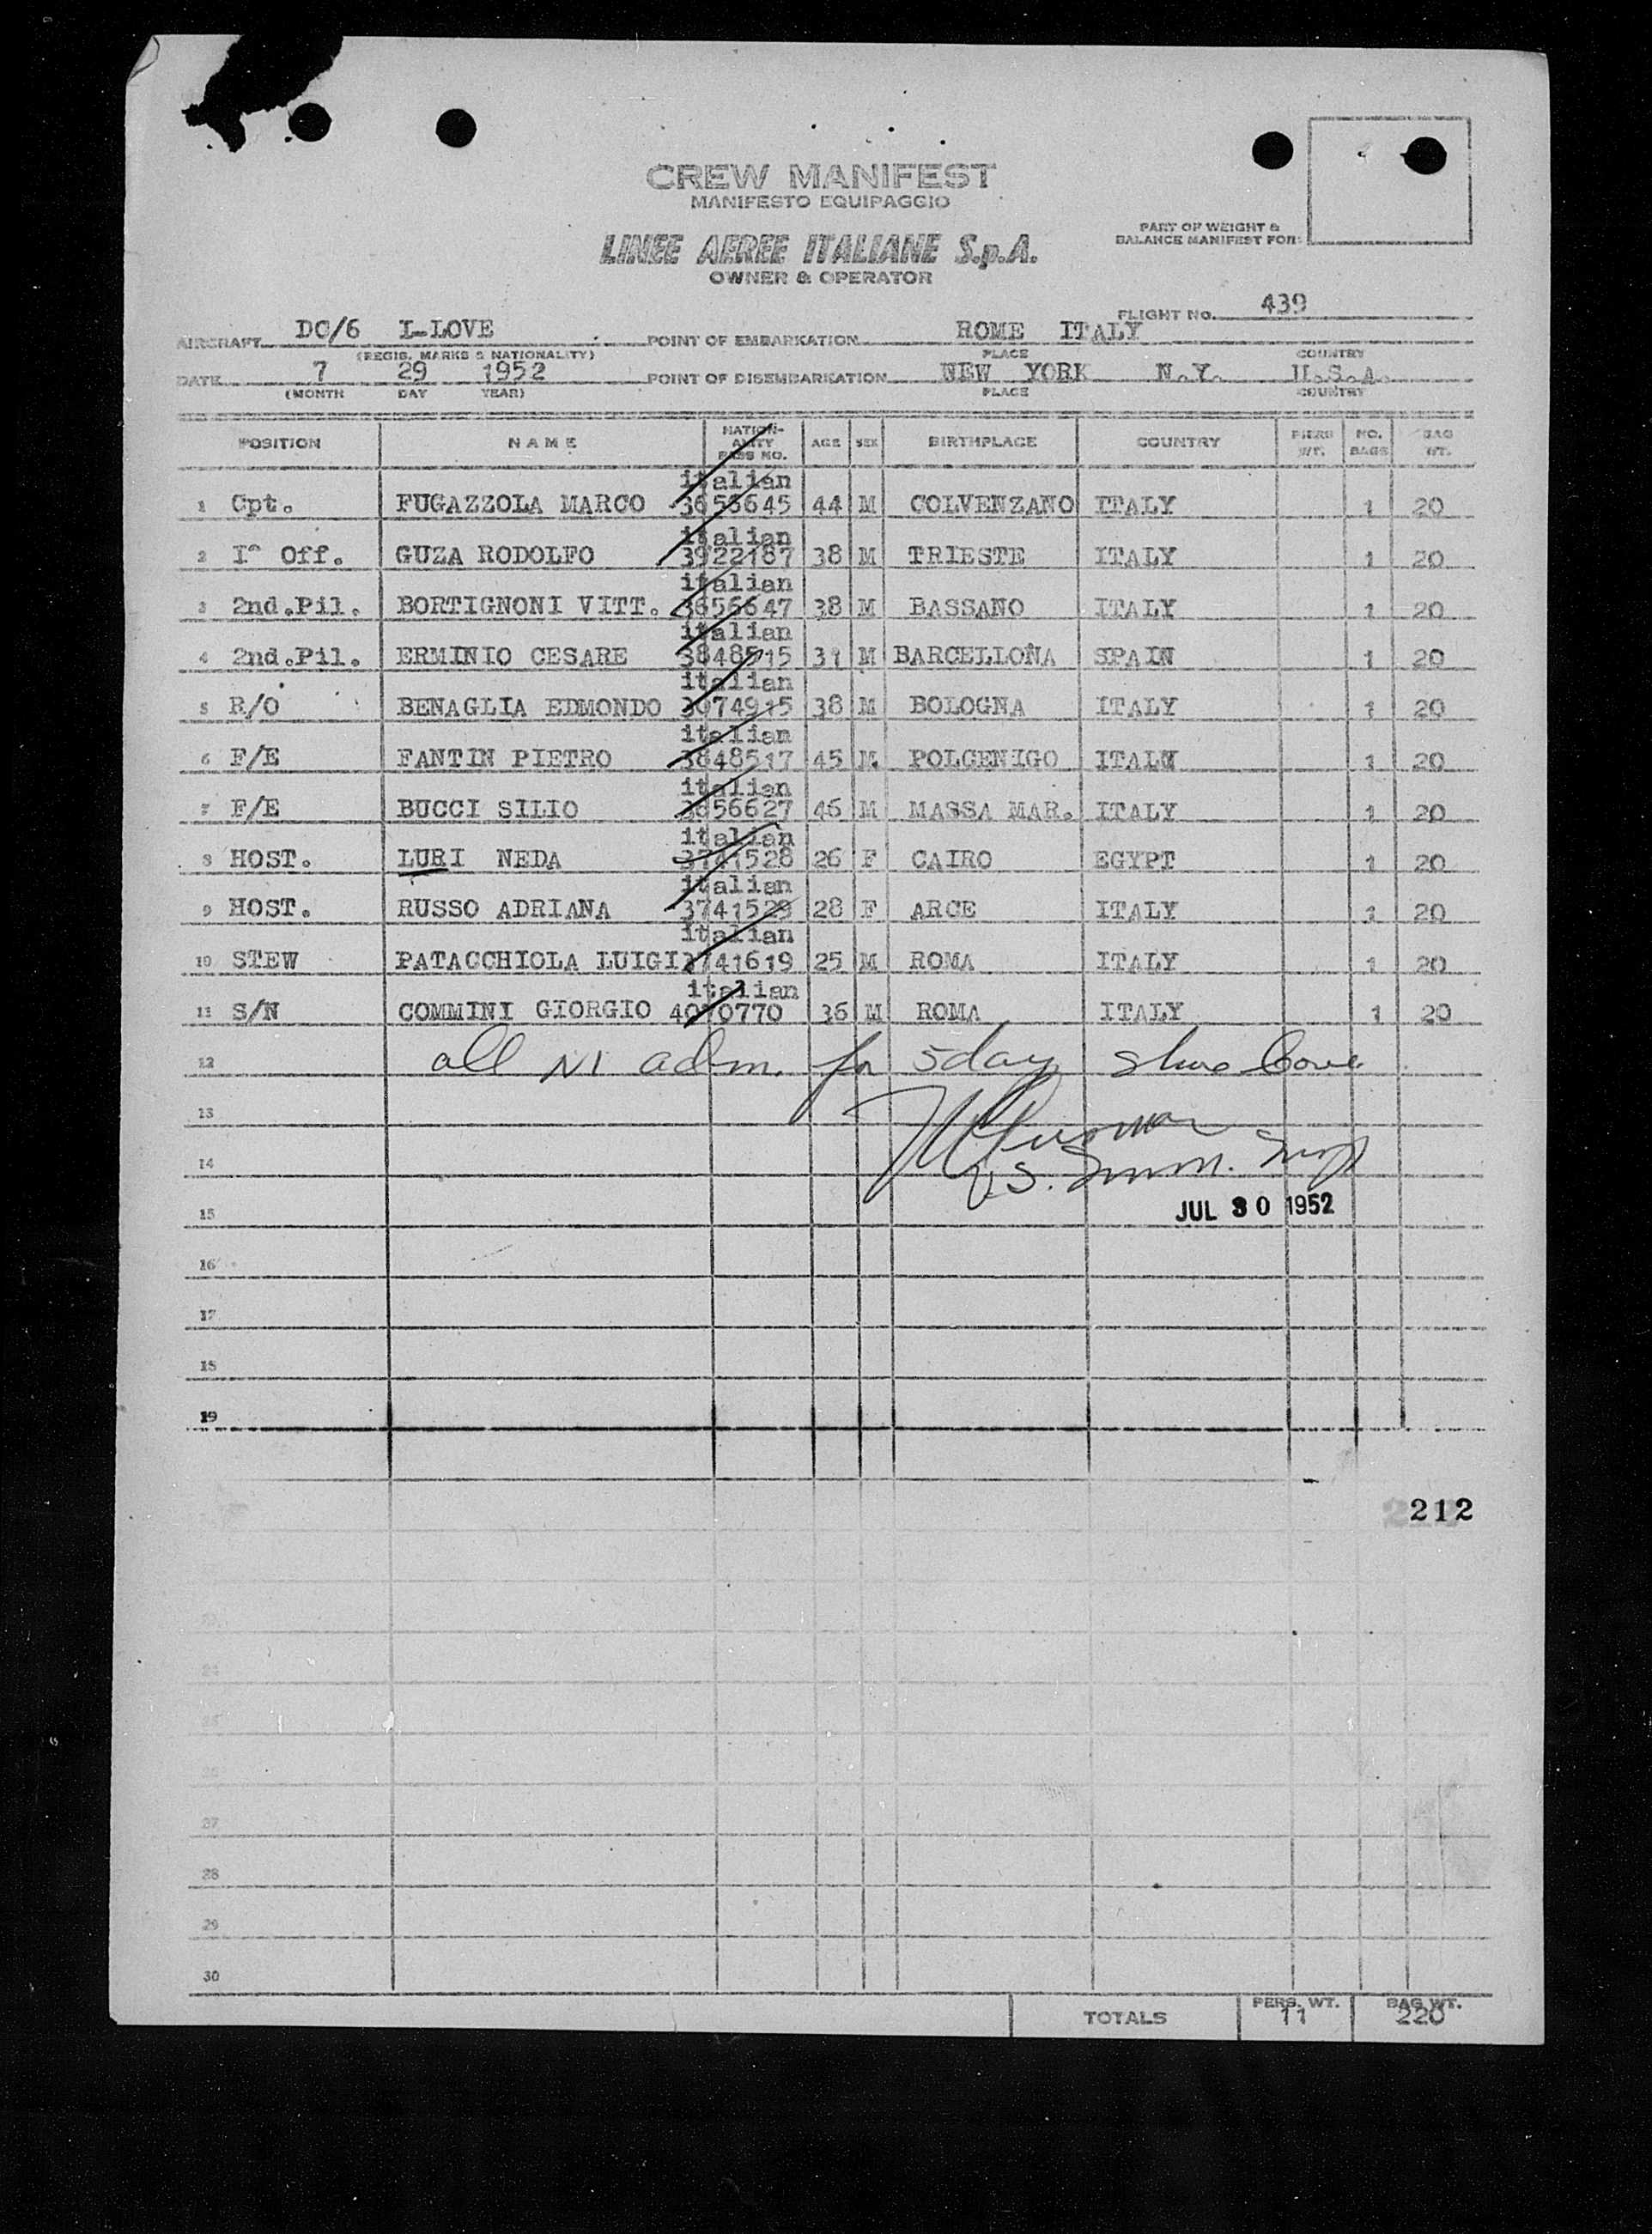 CREW MANIFEST
MANIFESTO EQUIPAGGIO
PART OF WEIGHT &
BALANCE MANIFEST FOR:
LINEE AEREE ITALIANE S.p.A.
OWNER & OPERATOR
FLIGHT No. 439
AIRCRAFT DC/6 I-LOVE POINT OF EMBARKATION ROME ITALY
(REGIS. MARKS & NATIONALITY) PLACE COUNTRY
DATE 7 29 1952 POINT OF DISEMBARKATION NEW YORK N.Y. U.S.A.
(MONTH DAY YEAR) PLACE COUNTRY
POSITION NAME NATION-ALITY PASS NO. AGE SEX BIRTHPLACE COUNTRY PERS WT. NO. BAGS BAG WT.
italian
1 Cpt. FUGAZZOLA MARCO 3656645 44 M COLVENZANO ITALY 1 20
italian
2 I° Off. GUZA RODOLFO 3922187 38 M TRIESTE ITALY 1 20
italian
3 2nd.Pil. BORTIGNONI VITT. 3656647 38 M BASSANO ITALY 1 20
italian
4 2nd.Pil. ERMINIO CESARE 3848515 31 M BARCELLOÑA SPAIN 1 20
italian
5 R/O BENAGLIA EDMONDO 3074915 38 M BOLOGNA ITALY 1 20
italian
6 F/E FANTIN PIETRO 3848517 45 M. POLCENIGO ITALY 1 20
italian
7 F/E BUCCI SILIO 3656627 46 M MASSA MAR. ITALY 1 20
italian
8 HOST. LURI NEDA 3741528 26 F CAIRO EGYPT 1 20
italian
9 HOST. RUSSO ADRIANA 3741529 28 F ARCE ITALY 1 20
italian
10 STEW PATACCHIOLA LUIGI 3741619 25 M ROMA ITALY 1 20
italian
11 S/N COMMINI GIORGIO 4010770 36 M ROMA ITALY 1 20
12 all NI adm. for 5 day shore leave
13
14 U.S. Imm. Insp
15 JUL 30 1952
16
17
18
19
212
27
28
29
30
TOTALS PERS. WT. 11 BAG WT. 220